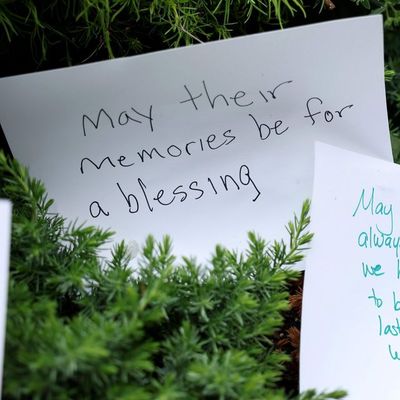 May their
memories be for
a blessing
May
we
to
last